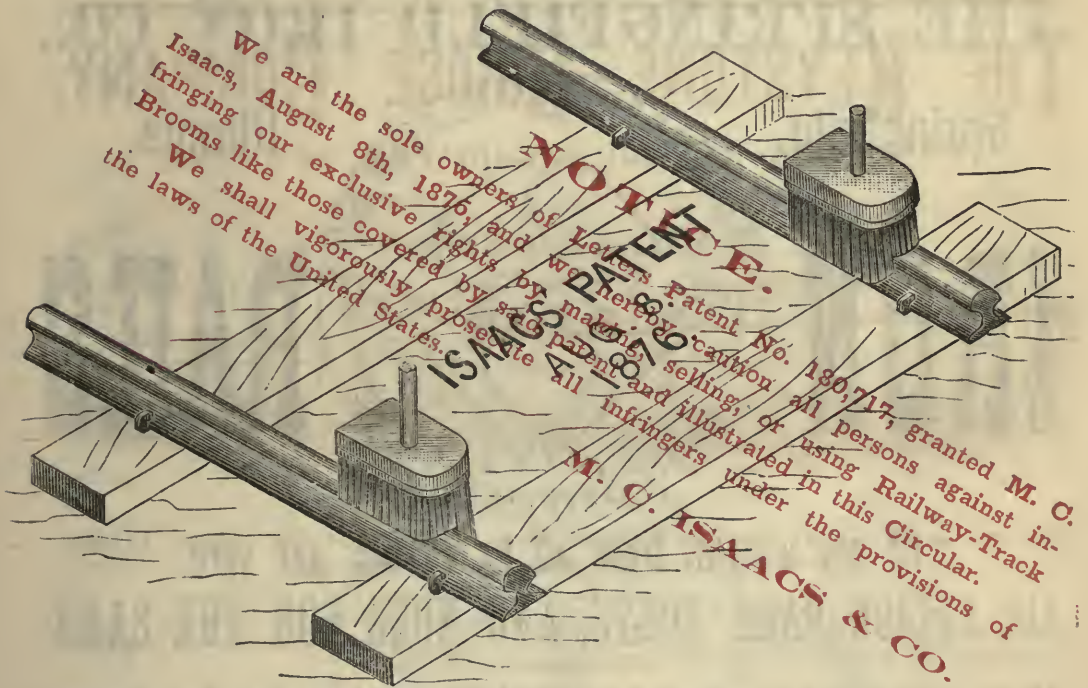 NOTICE.
We are the sole owners of Letters Patent No. 180,717, granted M. C.
Isaacs, August 8th, 1876, and we hereby caution all persons against in-
fringing our exclusive rights by making, selling, or using Railway-Track
Brooms like those covered by said patent and illustrated in this Circular.
We shall vigorously prosecute all infringers under the provisions of
the laws of the United States.
M. C. ISAACS & CO.
ISAACS PATENT
AUG. 8
1876.